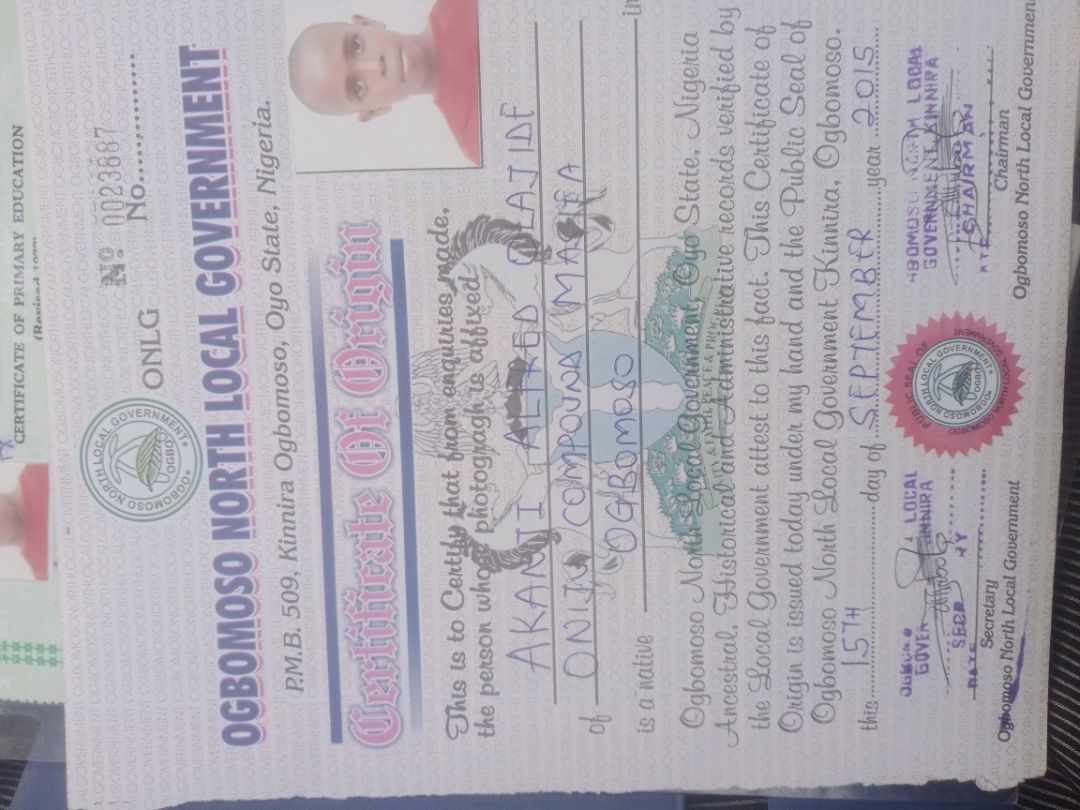 CERTIFICATE OF PRIMARY EDUCATION
ONLG
Nº 0023687
No.
OGBOMOSO NORTH LOCAL GOVERNMENT
OGBOMOSO NORTH LOCAL GOVERNMENT
P.M.B. 509, Kinnira Ogbomoso, Oyo State, Nigeria.
Certificate Of Origin
This is to Certify that from enquiries made.
the person whose photograph is affixed
AKANJI ALIXED OLAJIDE
of ONIJU COMPOUND MASIFA
OGBOMOSO
is a native in
Ogbomoso North Local Government, Oyo State, Nigeria
Ancestral, Historical and Administrative records verified by
the Local Government attest to this fact. This Certificate of
Origin is issued today under my hand and the Public Seal of
Ogbomoso North Local Government Kinnira, Ogbomoso.
this 15TH day of SEPTEMBER year 2015
LOCAL
Secretary
Ogbomoso North Local Government
PUBLIC SEAL OF
OGBOMOSO NORTH LOCAL GOVERNMENT
GOVERNMENT KINNIRA
CHAIRMAN
Chairman
Ogbomoso North Local Government